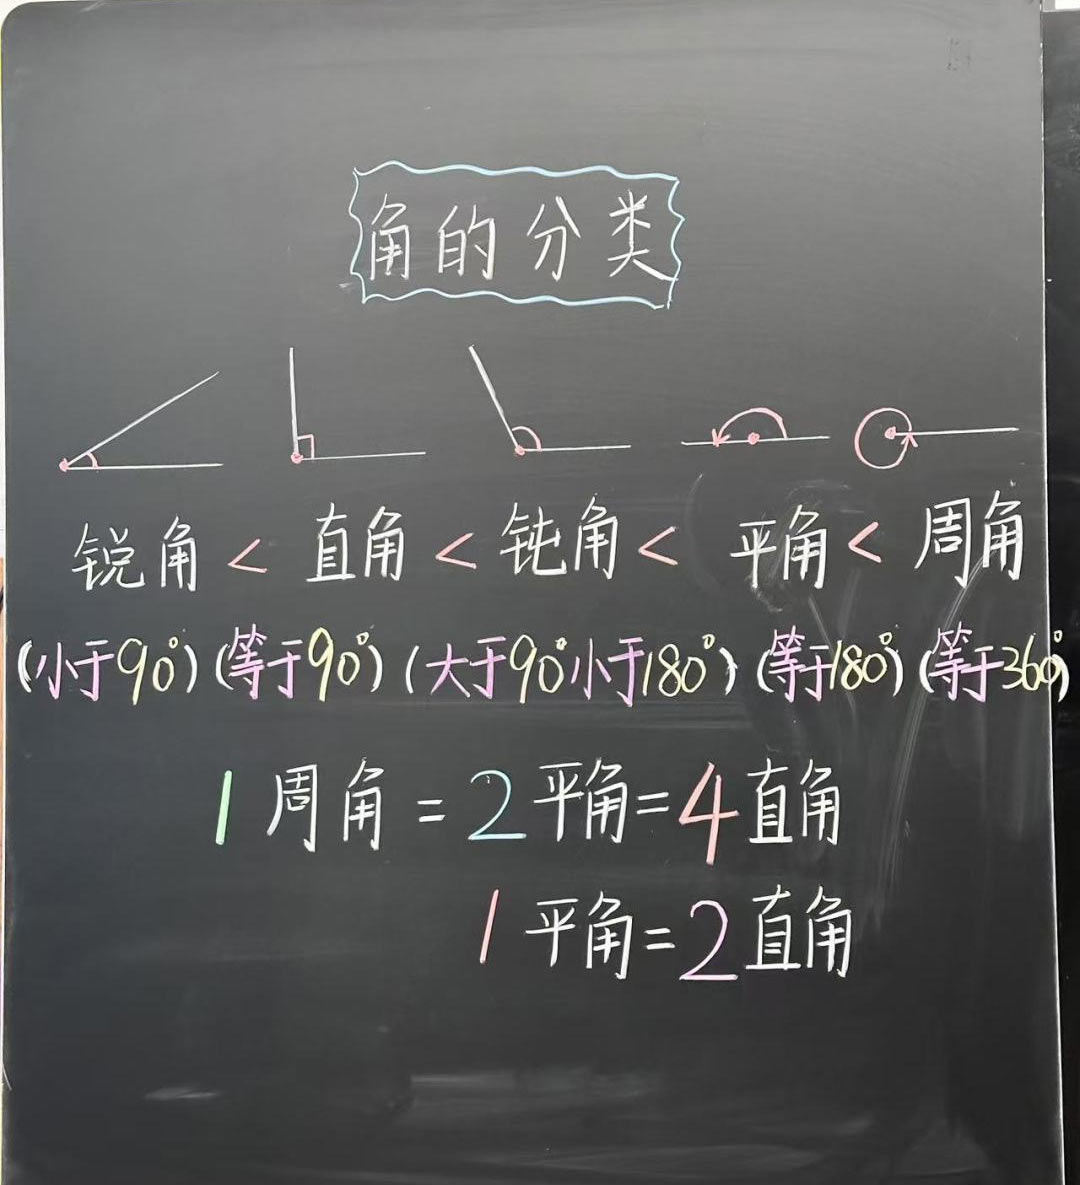 角的分类
锐角 < 直角 < 钝角 < 平角 < 周角
(小于90°) (等于90°) (大于90°小于180°) (等于180°) (等于360°)
1周角=2平角=4直角
1平角=2直角